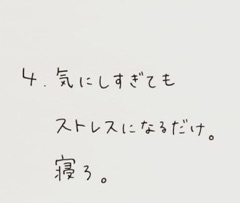 4. 気にしすぎても
ストレスになるだけ。
寝ろ。